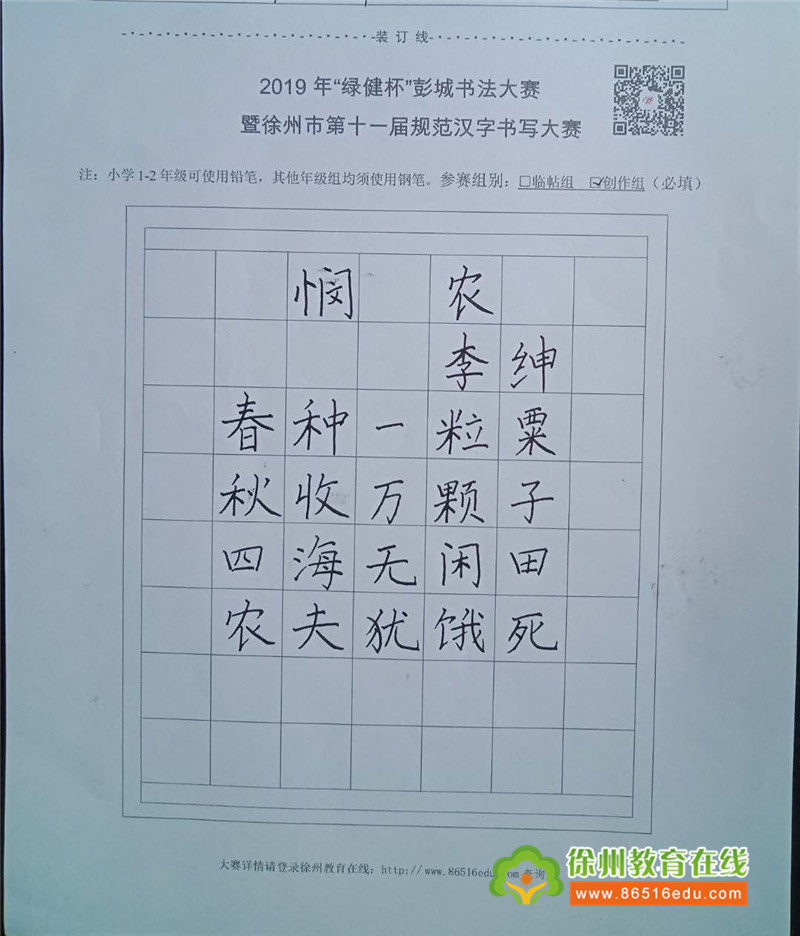 装 订 线
2019 年“绿健杯”彭城书法大赛
暨徐州市第十一届规范汉字书写大赛
注：小学1-2年级可使用铅笔，其他年级组均须使用钢笔。参赛组别：□临帖组 ☑创作组（必填）
悯 农
李 绅
春 种 一 粒 粟
秋 收 万 颗 子
四 海 无 闲 田
农 夫 犹 饿 死
大赛详情请登录徐州教育在线：http://www.86516edu.com查询
徐州教育在线
www.86516edu.com